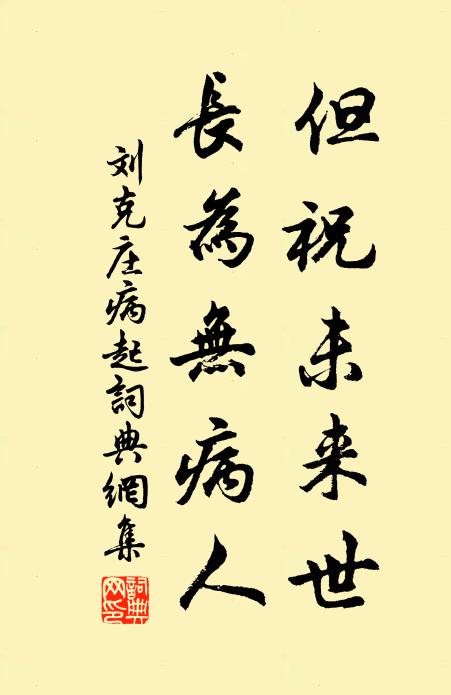 但祝未来世
長為無病人
刘克庄病起詞典網集
詞典
网印